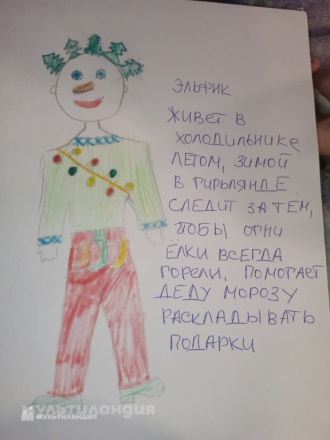 ЭЛЬФИК
ЖИВЕТ В
ХОЛОДИЛЬНИКЕ
ЛЕТОМ, ЗИМОЙ
В ГИРЬЛЯНДЕ
СЛЕДИТ ЗА ТЕМ,
ТОБЫ ОГНИ
ЁЛКИ ВСЕГДА
ГОРЕЛИ, ПОМОГАЕТ
ДЕДУ МОРОЗУ
РАСКЛАДЫВАТЬ
ПОДАРКИ
МУЛЬТИЛАНДИЯ
МУЛЬТИЛАНДИЯ